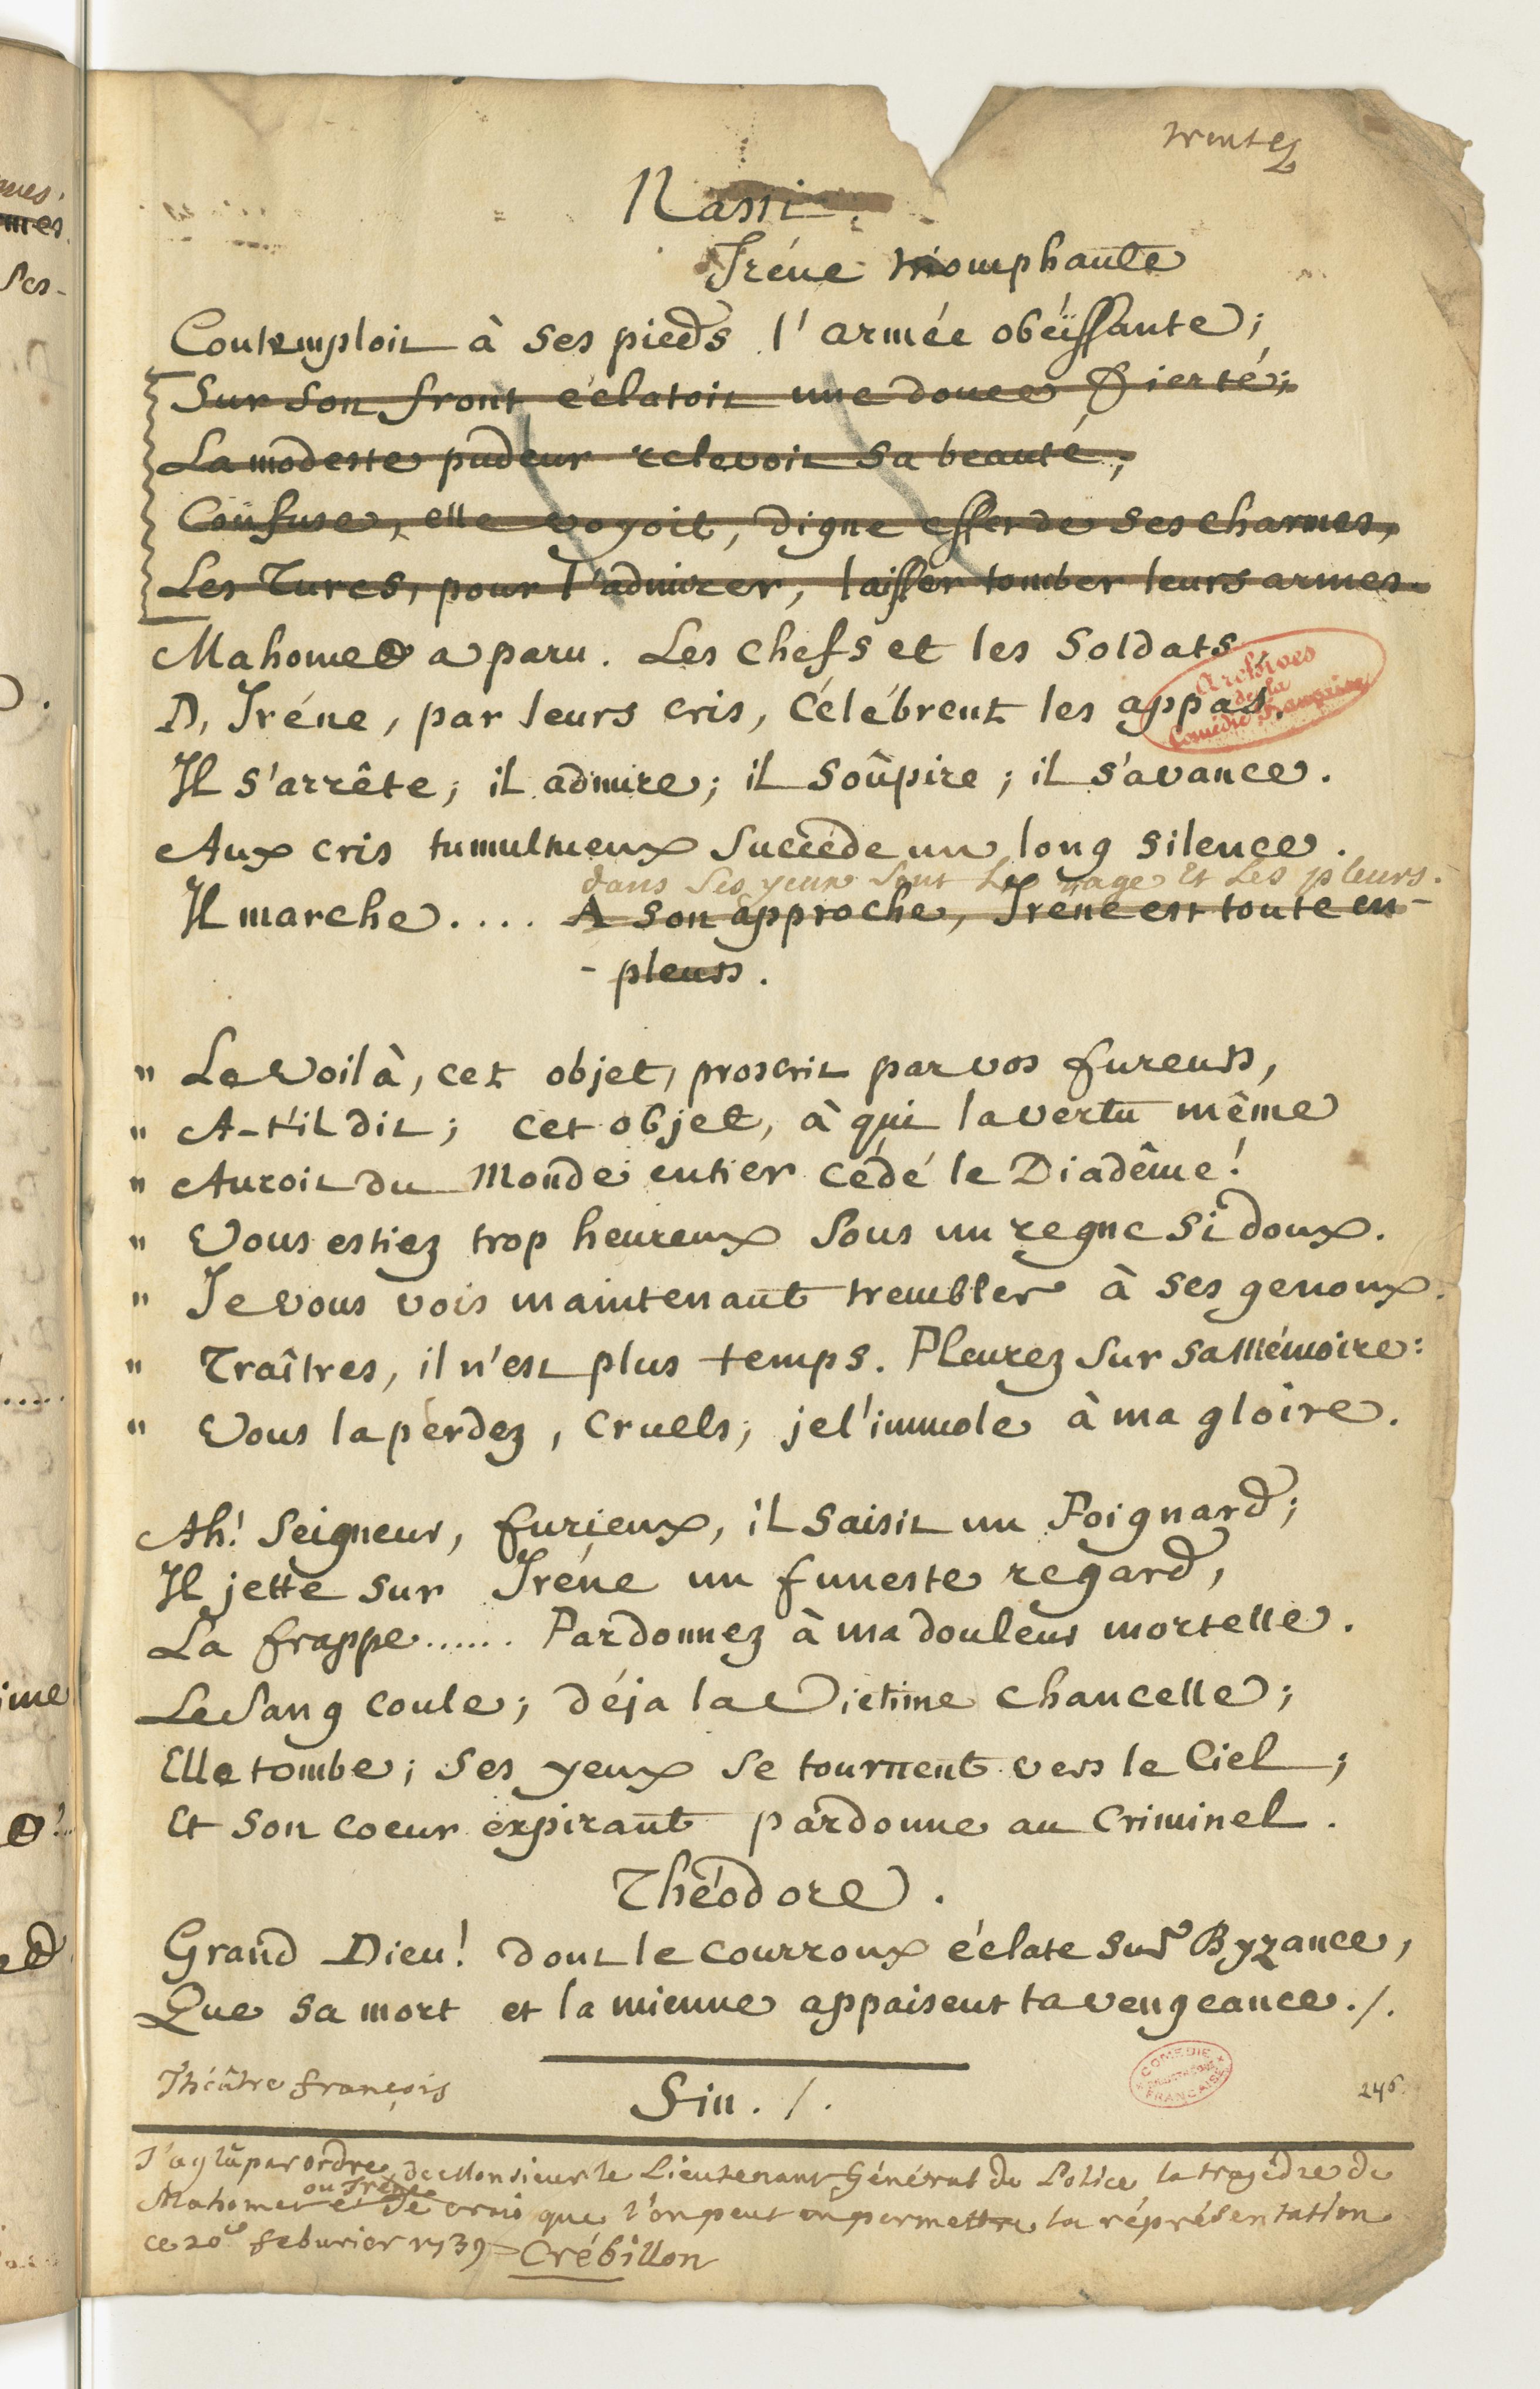 trente
Nassi.
Iréne triomphante
Contemploit à ses pieds l'armée obéïssante;
Sur son front éclatoit une douce fierté;
La modeste pudeur relevoit sa beauté;
Confuse, elle voyoit, digne effet de ses charmes,
Les Turcs, pour l'admirer, laisser tomber leurs armes.
Mahomet a paru. Les chefs et les Soldats
D, Iréne, par leurs cris, célébrent les appas.
Archives
de la
Comédie Française
Il s'arrête; il admire; il soûpire; il s'avance.
Aux cris tumultueux succéde un long silence.
dans Ses yeux Sont La rage Et Les pleurs.
Il marche.... A son approche, Iréne est toute en-
- pleurs.
" Le voilà, cet objet, proscrit par vos fureurs,
" A-t'il dit; cet objet, à qui la vertu même
" Auroit du Monde entier cédé le Diadême!
" Vous estiez trop heureux sous un regne si doux.
" Je vous vois maintenant trembler à ses genoux.
" Traîtres, il n'est plus temps. Pleurez sur sa Mémoire:
" Vous la perdez, cruels; je l'immole à ma gloire.
Ah! Seigneur, furieux, il saisit un Poignard;
Il jette sur Iréne un funeste regard,
La frappe...... Pardonnez à ma douleur mortelle.
Le Sang coule; déja la Victime chancelle;
Elle tombe; ses yeux se tournent vers le Ciel;
Et son coeur expirant pardonne au Criminel.
Théodore.
Grand Dieu! dont le courroux éclate sur Byzance,
Que sa mort et la mienne appaisent ta vengeance./.
Théâtre françois
Fin./.
COMÉDIE
FRANÇAISE
246.
J'ay lû par ordre de Monsieur le Lieutenant Général de Police la tragédie de
ou Iréne
Mahomet et je crois que l'on peut en permettre la réprésentation
ce 20e feburier 1739 Crébillon